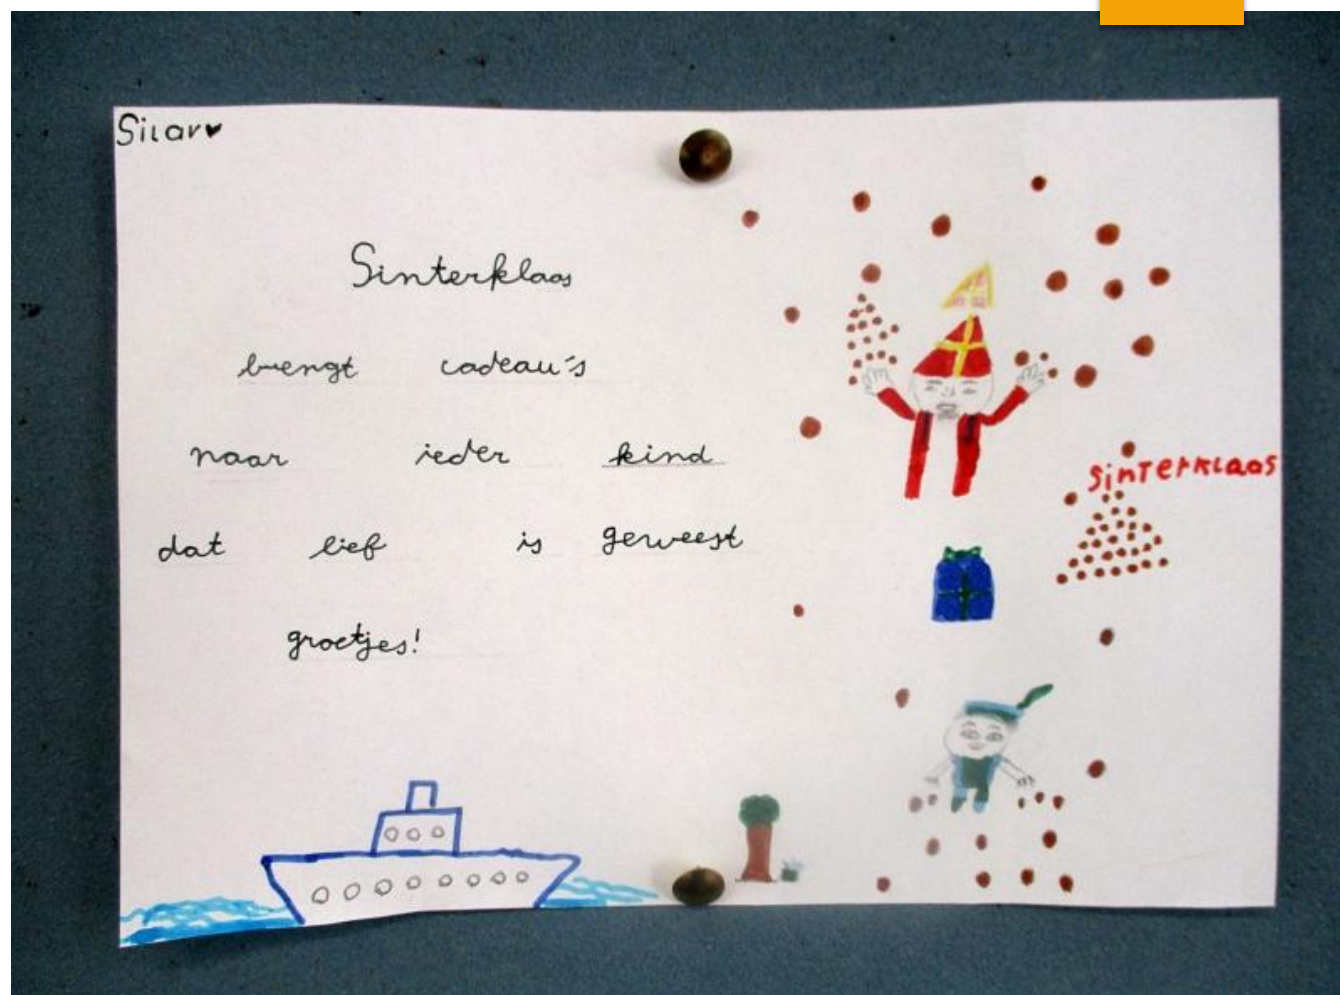 Silav♥
Sinterklaas
brengt cadeau's
naar ieder kind
dat lief is geweest
groetjes!
SinTerKLaas